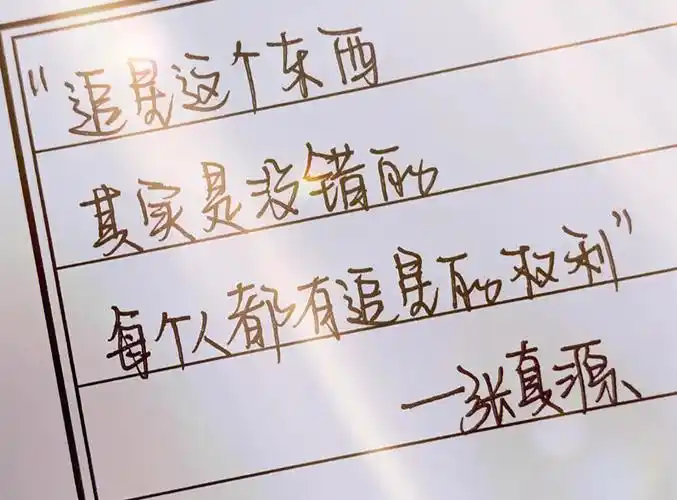 “追星这个东西
其实是没错的
每个人都有追星的权利”
—张真源